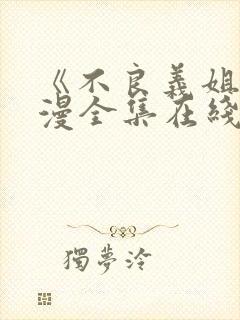 《不良義姐
漫全集在綫
獨夢泠